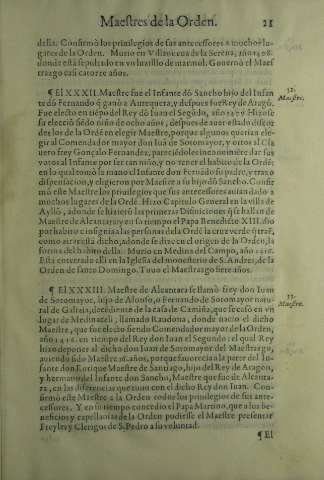 Maestres de la Orden. 21
della. Confirmò los privilegios de sus antecessores a muchos lu-
gares de la Orden. Murio en Villanueva de la Serena, año 1408.
donde està sepultado en vn luzillo de marmol. Governò el Maes
trazgo casi catorze años.
¶ El XXXII. Maestre fue el Infante dõ Sancho hijo del Infan
32.
te dõ Fernando q̃ ganò a Antequera, y despues fue Rey de Aragõ.
Maestre.
Fue electo en tiẽpo del Rey dõ Iuan el Segũdo, año 1409 Hizose
su eleciõ siẽdo niño de ocho años, despues de auer estado discor
des los de la Ordẽ en elegir Maestre, porque algunos querian ele-
gir al Comendador mayor don Iuã de Sotomayor, y otros al Cla
uero frey Gonçalo Fernandez, pareciẽdoles inconuiniẽte dar sus
votos al Infante por ser tan niño, y no tener el habito de la Ordẽ:
en lo qual tomò la mano el Infante don Fernãdo su padre, y traxo
dispensacion, y eligieron por Maestre a su hijo dõ Sancho. Confir
mò este Maestre los privilegios que sus antecessores auian dado a
muchos lugares de la Ordẽ. Hizo Capitulo General en la villa de
Ayllõ, adonde se hizierõ las primeras Difiniciones q̃ se hallan de
Maestre de Alcantara; y en su tiempo el Papa Benedicto XIII. dio
por habito e insignia a las personas de la Ordẽ la cruz verde q̃ traẽ,
como atras està dicho, adonde se dize en el origen de la Ordẽ, la
forma del habito della. Murio en Medina del Campo, año 1416.
Està enterrado alli en la Iglesia del monesterio de S. Andres, de la
Orden de santo Domingo. Tuuo el Maestrazgo siete años.
¶ El XXXIII. Maestre de Alcantara se llamò frey don Iuan
33.
de Sotomayor, hijo de Alonso, o Fernando de Sotomayor natu-
Maestre.
ral de Galizia, decendiente de la casa de Camiña, que se casò en vn
lugar de Medinaceli, llamado Raudona, donde nacio el dicho
Maestre, que fue electo siendo Comendador mayor de la Orden,
año 1416. en tiempo del Rey don Iuan el Segundo: el qual Rey
hizo deponer al dicho don Iuan de Sotomayor del Maestrazgo,
auiendo sido Maestre 16. años, porque fauorecia a la parte del In-
fante don Enrique Maestre de Santiago, hijo del Rey de Aragon,
y hermano del Infante don Sancho, Maestre que fue de Alcanta-
ra, en las diferencias que tuuo con el dicho Rey don Iuan. Con-
firmò este Maestre a la Orden todos los privilegios de sus ante-
cessores. Y en su tiempo concedio el Papa Martino, que a los be-
neficios y capellanias de la Orden pudiesse el Maestre presentar
Freyles y Clerigos de S. Pedro a su voluntad.
¶ El